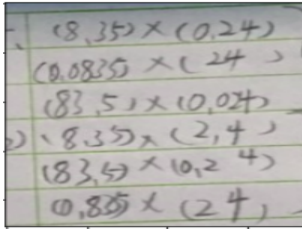 1. (8.35) × (0.24)
(0.0835) × (24 )
(83.5) × (0.024)
2) (8.35) × (2.4 )
(83.5) × (0.2 4)
(0.835) × (24)